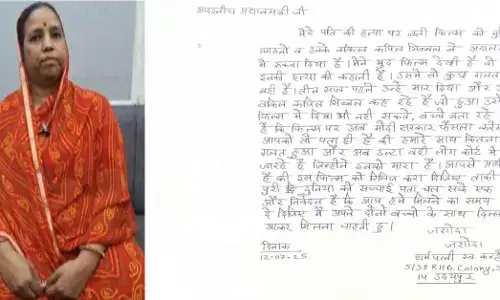 आदरणीय प्रधानमंत्री जी
मेरे पति की हत्या पर बनी फिल्म को
संगठनो व उनके वकिल कपिल सिब्बल ने अदालत
मे रुकवा दिया है। मैने खुद फिल्म देखी है वो
इनकी हत्या की कहानी है। उसमे तो कुछ गलत
नही है। तीन साल पहले उन्हे मार दिया और
वकिल कपिल सिब्बल कह रहे है जो हुआ उसे
फिल्म मे दिखा भी नही सकते, बच्चे बता रहे
है कि फिल्म पर अब मोदी सरकार फैसला
आपको तो पता ही है की हमारे साथ कितना
गलत हुआ और अब उल्टा वही लोग कोर्ट मे
जा रहे है जिन्होने इनको मारा है। आपसे
है की इस फिल्म को रिलिज करा दिजिए ताकी
पुरी दुनिया को सच्चाई पता चल सके एक
और निवेदन है कि आप हमे मिलने का समय
दे दिजिए मैं अपने दोनो बच्चो के साथ
आकर मिलना चाहती हु।
जशोदा
जशोदा
दिनांक
12-07-25
धर्मपत्नी स्व
5/39 RHB Colony,
14 उदयपुर